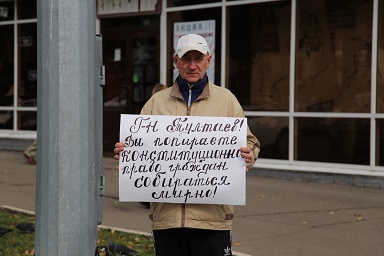 Г-н Тултаев!
Вы попираете
конституционно
право граждан
собираться
мирно!